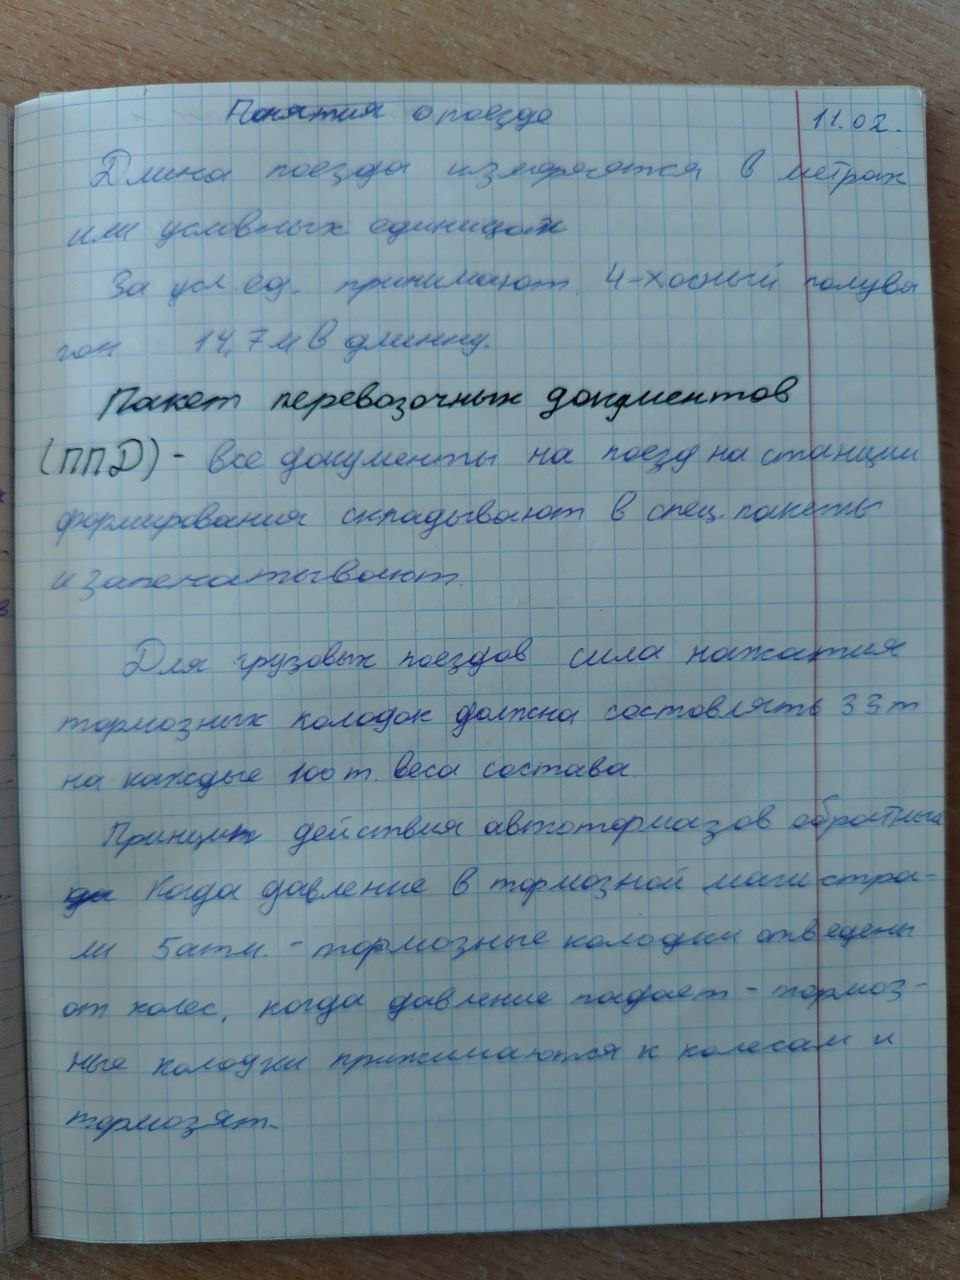 Понятия о поезде 11.02.
Длина поезда измеряется в метрах
или условных единицах
За усл. ед. принимают 4-хосный полува
гон 14,7 м в длинну.
Пакет перевозочных документов
(ППД) - все документы на поезд на станции
формирования складывают в спец. пакеты
и запечатывают.
Для грузовых поездов сила нажатия
тормозных колодок должна составлять 33 т
на каждые 100 т. веса состава
Принцип действия автотормазов обратный
Когда давление в тормозной магистра-
ли 5 атм. - тормозные колодки отведены
от колес, когда давление падает - тормоз-
ные колодки прижимаются к колесам и
тормозят.